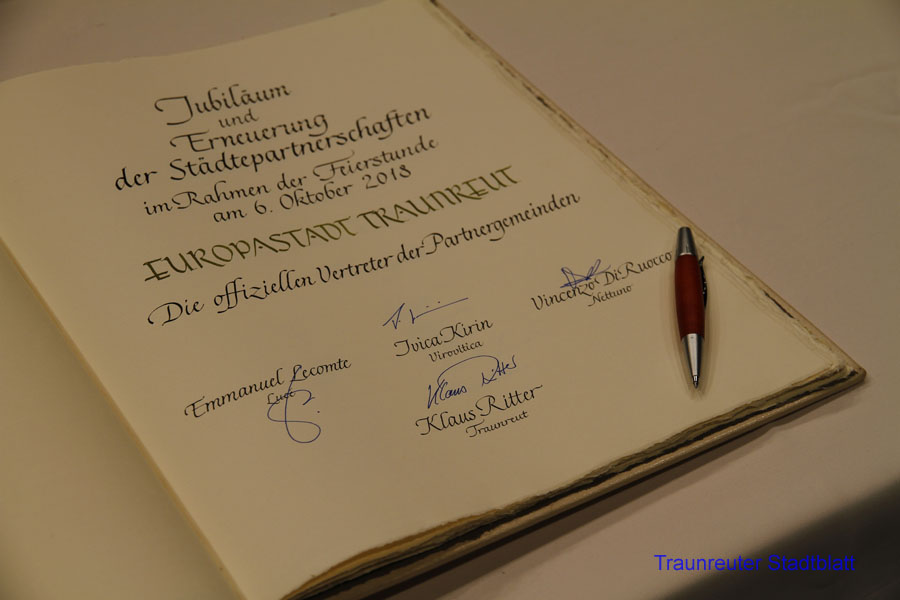 Jubiläum
und
Erneuerung
der Städtepartnerschaften
im Rahmen der Feierstunde
am 6. Oktober 2018
EUROPASTADT TRAUNREUT
Die offiziellen Vertreter der Partnergemeinden
Vincenzo Di Ruocco
Nettuno
Ivica Kirin
Virovitica
Emmanuel Lecomte
Lucé
Klaus Ritter
Klaus Ritter
Traunreut
Traunreuter Stadtblatt